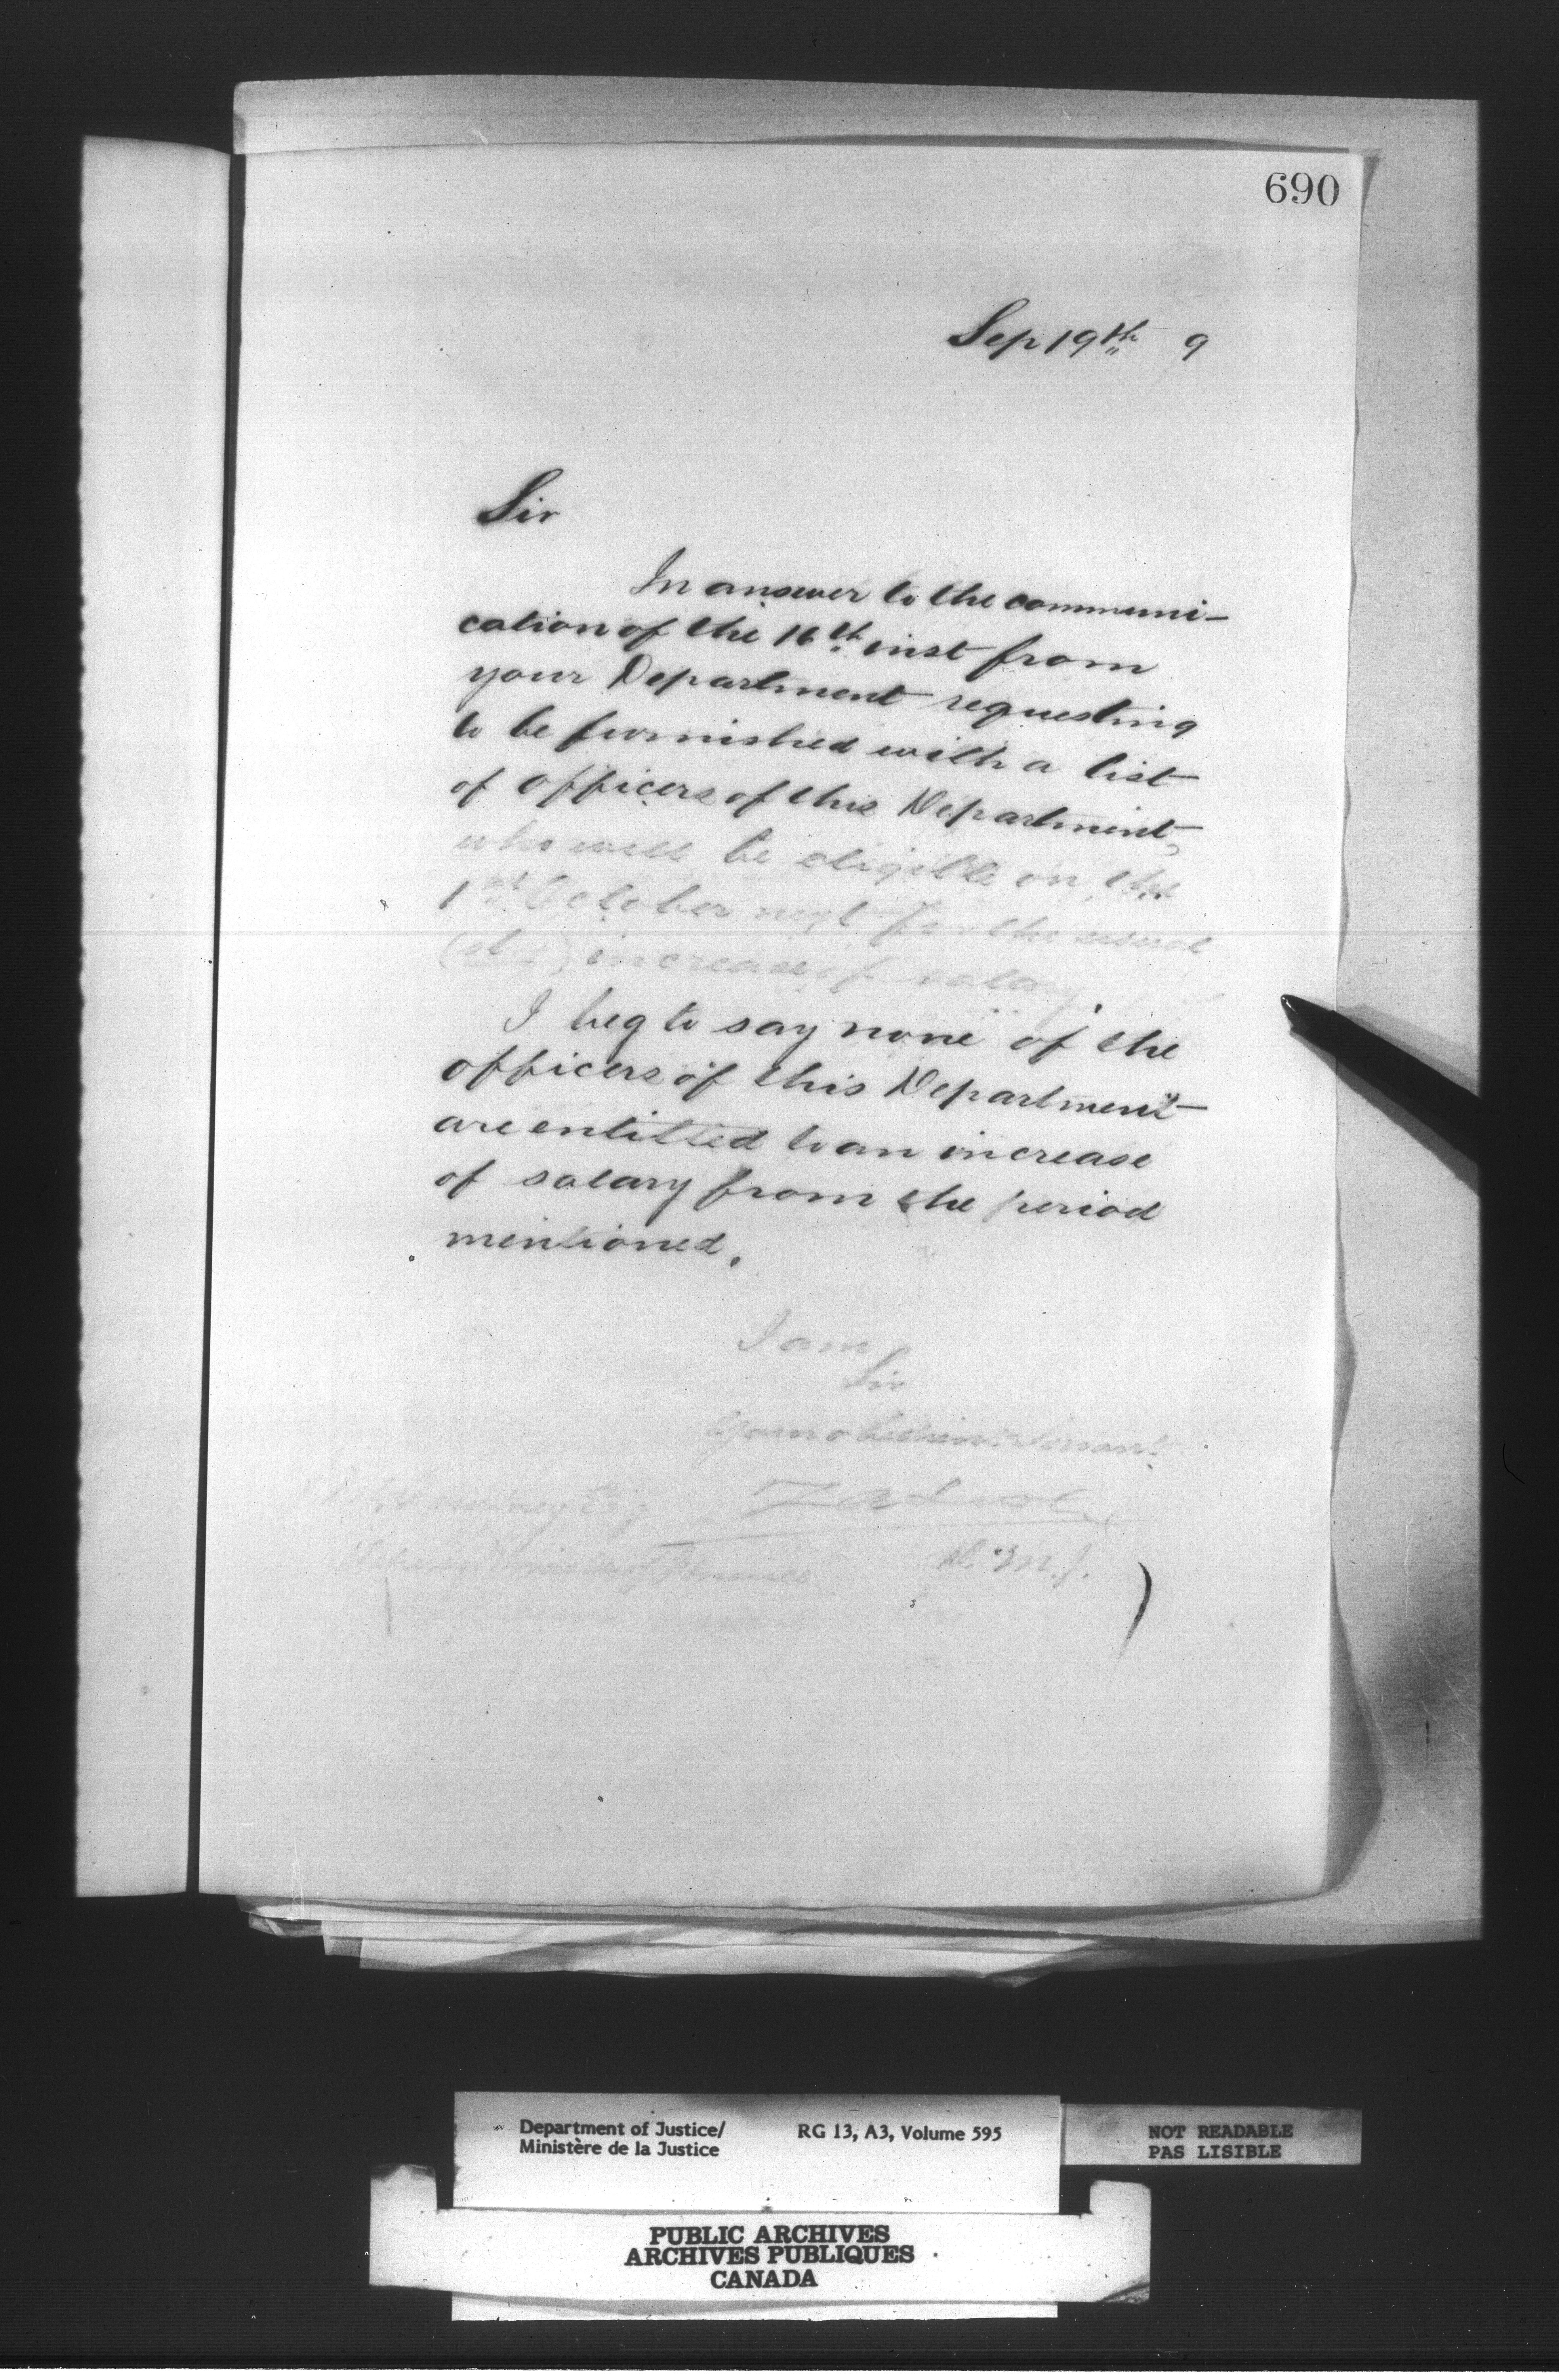 690
Sep 19th 9
Sir
In answer to the communi-
cation of the 16th inst from
your Department requesting
to be furnished with a list
of officers of this Department,
who will be eligible on the
1st October next for the usual
increase of salary.
I beg to say none of the
officers of this Department
are entitled to an increase
of salary from the period
mentioned.
I am
Sir
Your obedient Servant
Z A Lash
D. M. J.
Esq
Deputy Minister of Finance
Department of Justice/
Ministère de la Justice
RG 13, A3, Volume 595
NOT READABLE
PAS LISIBLE
PUBLIC ARCHIVES
ARCHIVES PUBLIQUES
CANADA